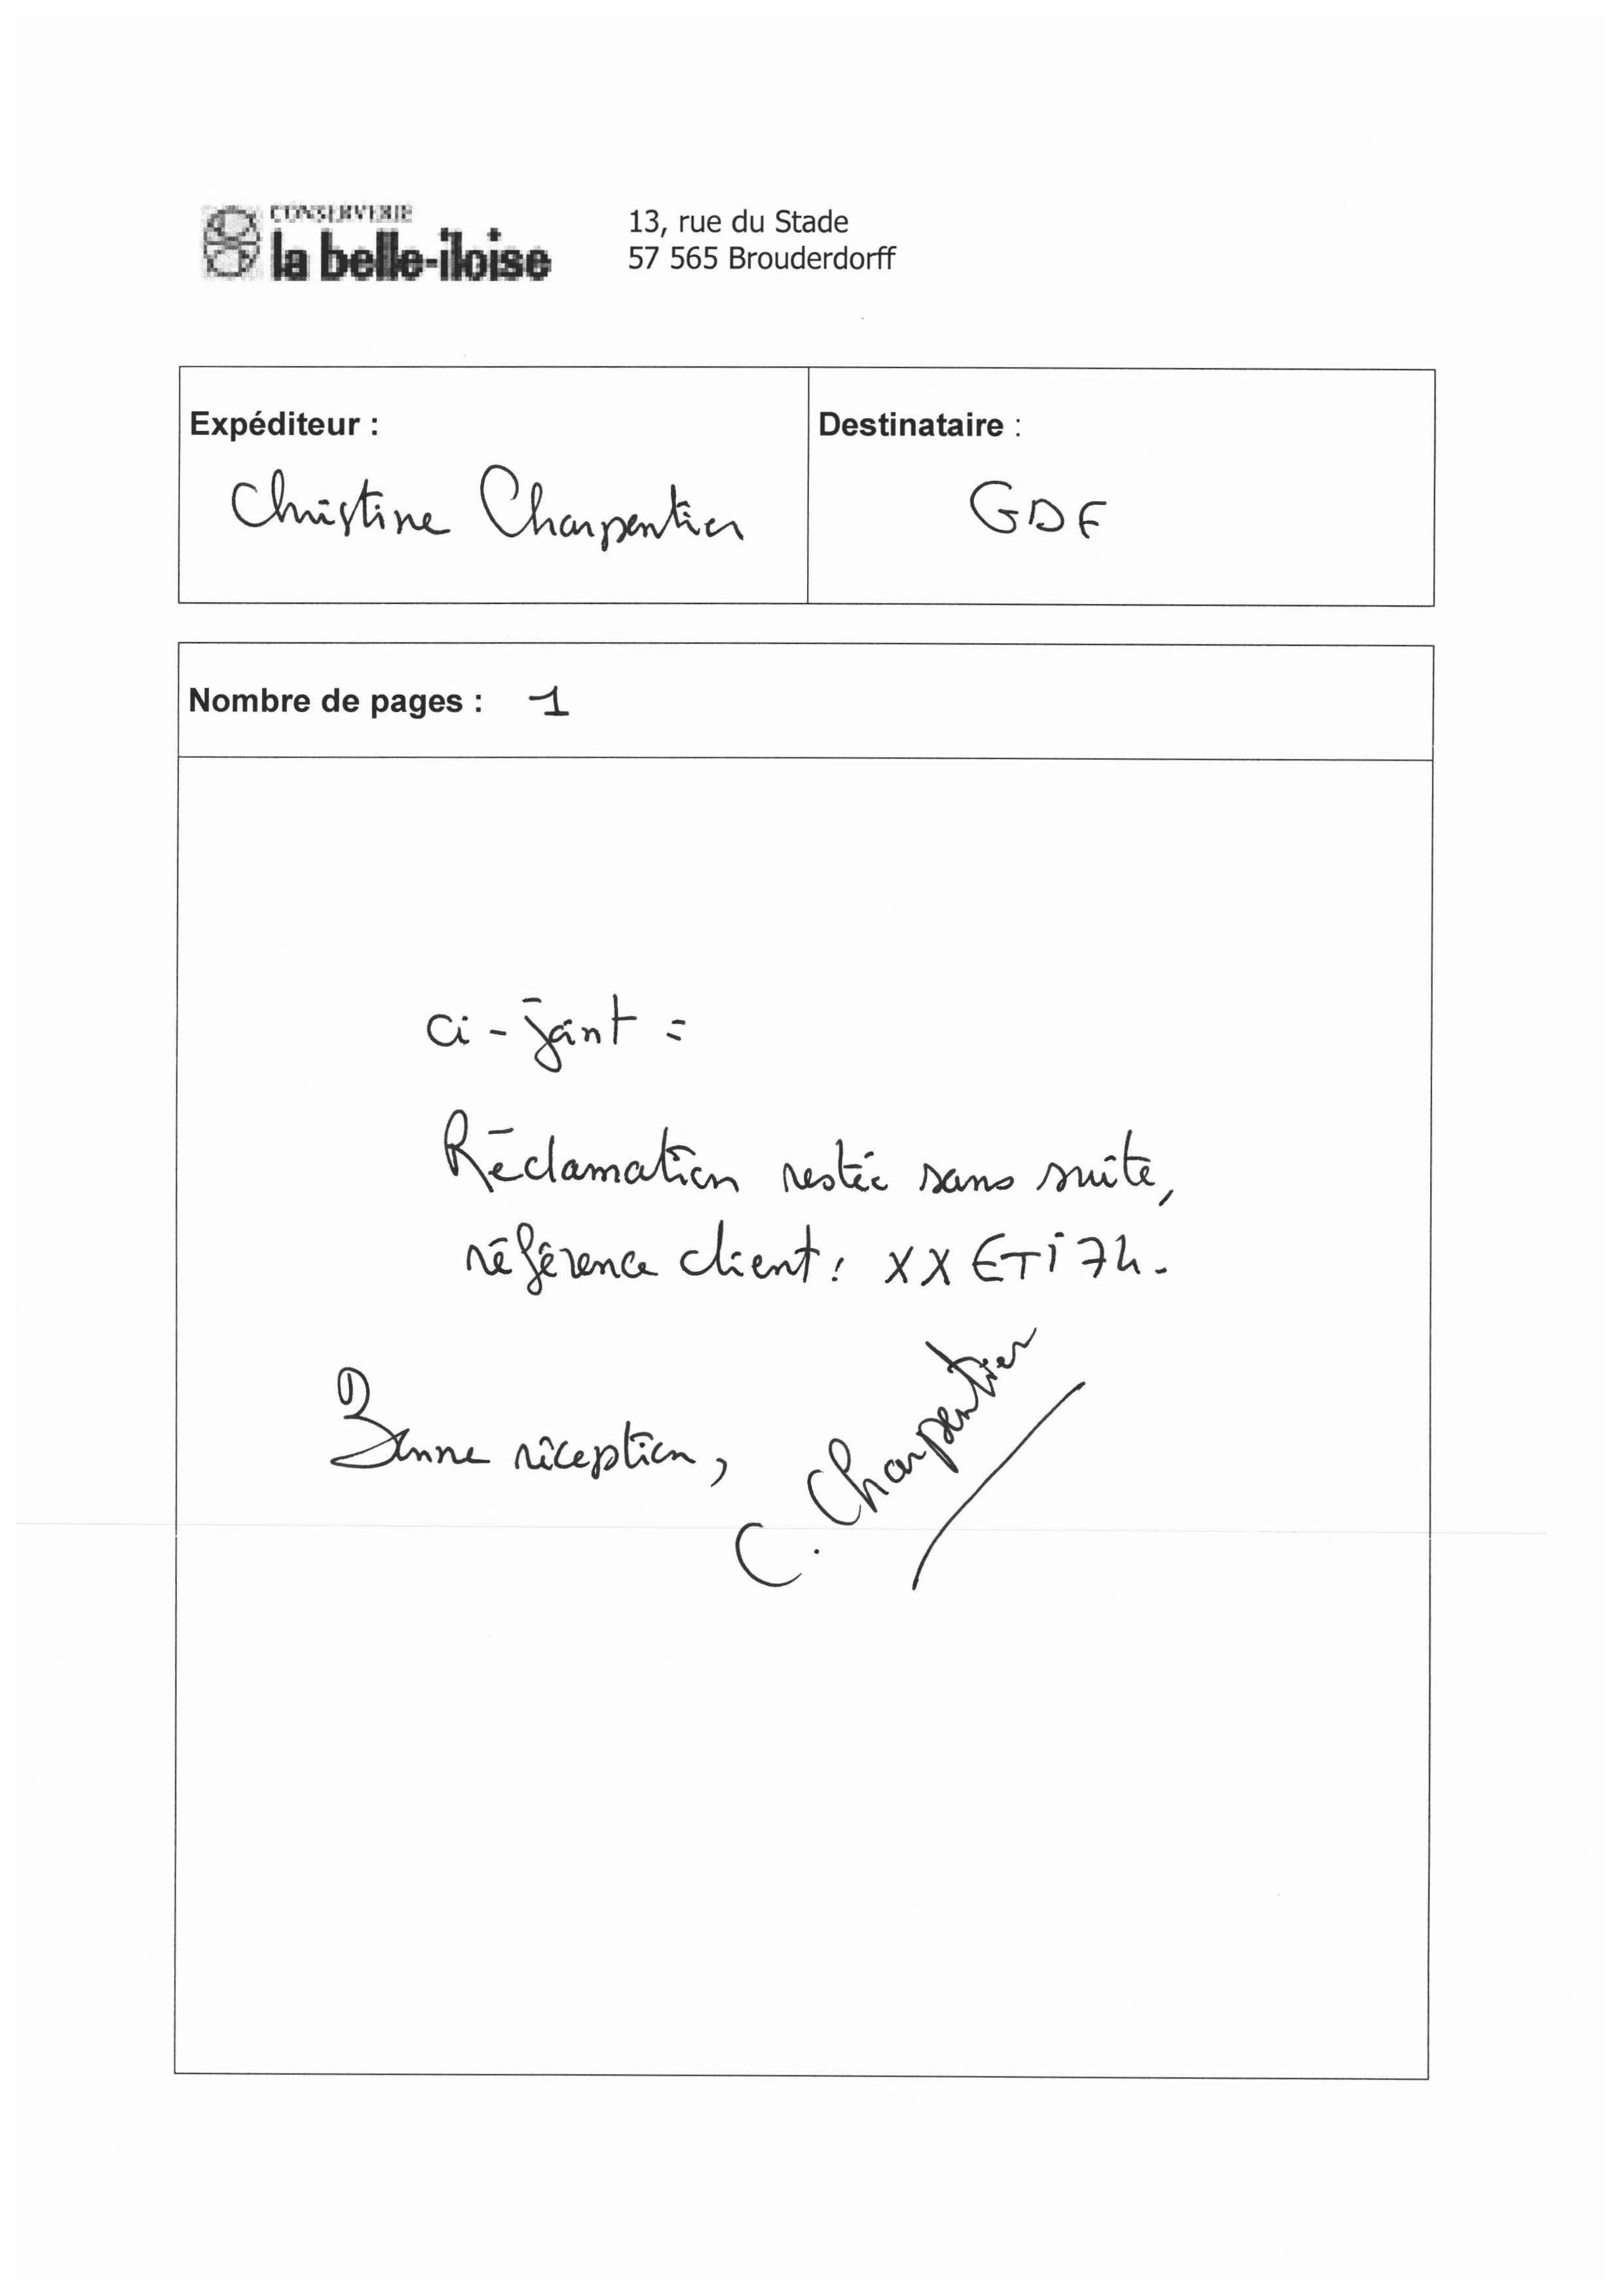 CONSERVERIE
la belle-iloise
13, rue du Stade
57 565 Brouderdorff
Expéditeur :
Christine Charpentier
Destinataire :
GDF
Nombre de pages : 1
ci-joint :
Réclamation restée sans suite,
référence client : XXETi74.
Bonne réception,
C. Charpentier